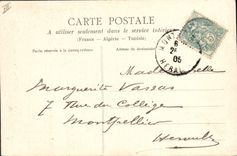 CARTE POSTALE
A utiliser seulement dans le service intérieur
(France - Algérie - Tunisie)
Partie réservée à la correspondance
Adresse du destinataire
6
05
HERAULT
Marguerite Vassas
7 Rue du Collège
Montpellier
Herault